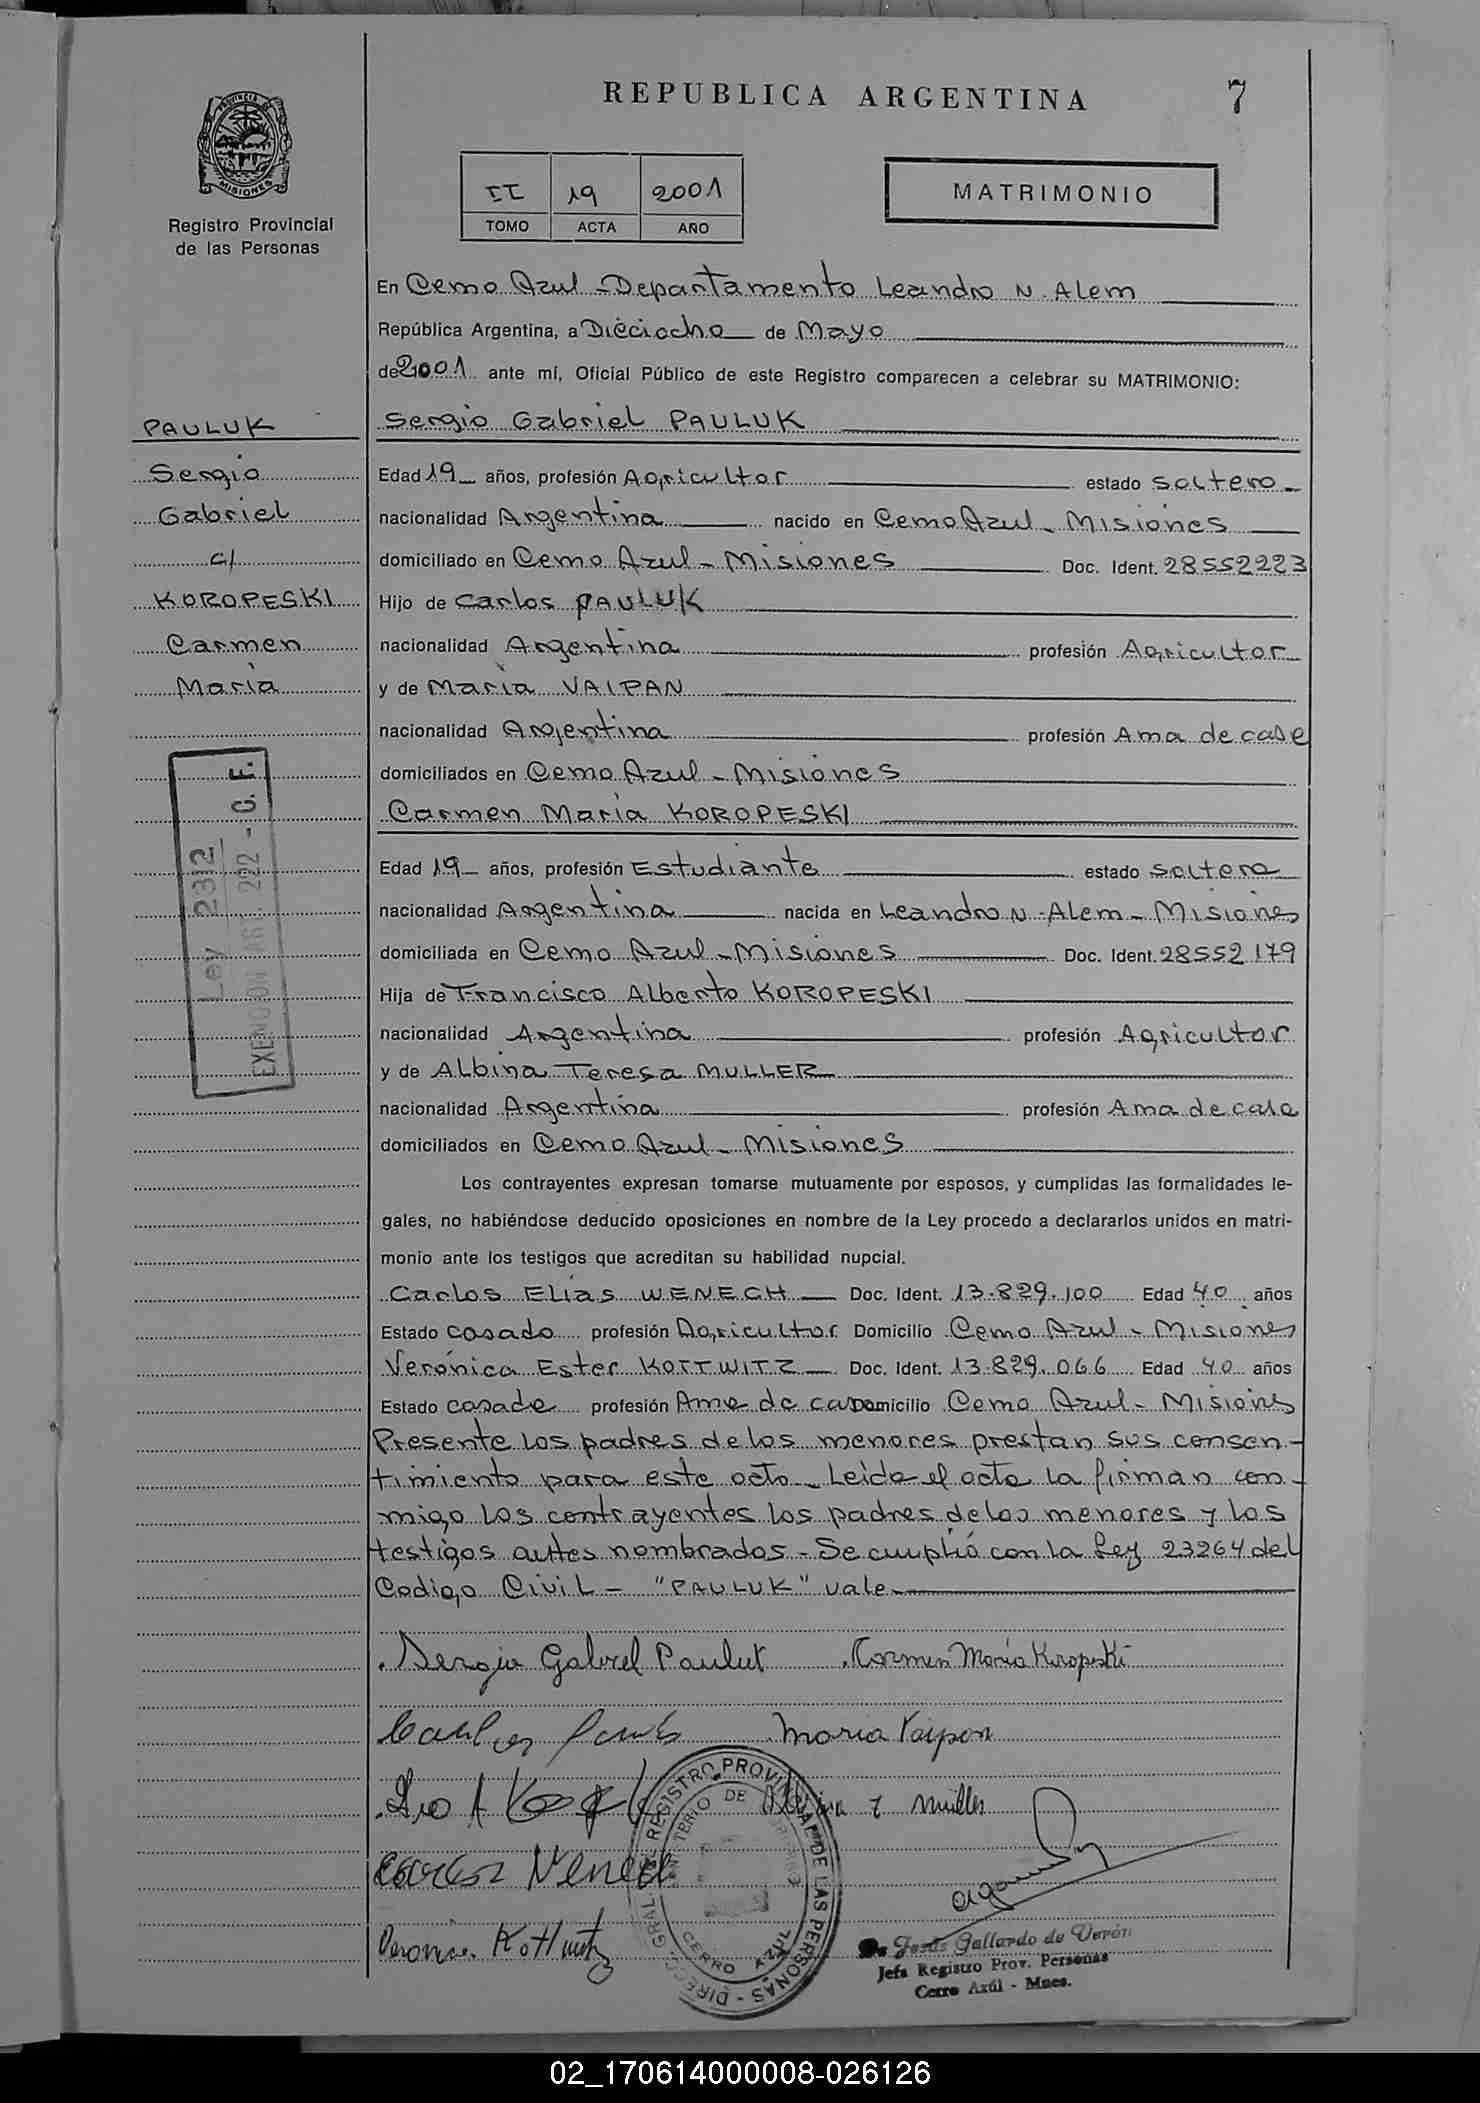 REPUBLICA ARGENTINA
7
PROVINCIA DE MISIONES
Registro Provincial
de las Personas
II 19 2001
TOMO ACTA AÑO
MATRIMONIO
En Cerro Azul - Departamento Leandro N. Alem
República Argentina, a Dieciocho de Mayo
de 2001 ante mí, Oficial Público de este Registro comparecen a celebrar su MATRIMONIO:
PAULUK
Sergio
Gabriel
c/
KOROPESKI
Carmen
María
Sergio Gabriel PAULUK
Edad 19 años, profesión Agricultor estado soltero
nacionalidad Argentina nacido en Cerro Azul - Misiones
domiciliado en Cerro Azul - Misiones Doc. Ident. 28552223
Hijo de Carlos PAULUK
nacionalidad Argentina profesión Agricultor
y de María VAIPAN
nacionalidad Argentina profesión Ama de casa
domiciliados en Cerro Azul - Misiones
Carmen María KOROPESKI
Edad 19 años, profesión Estudiante estado soltera
nacionalidad Argentina nacida en Leandro N. Alem - Misiones
domiciliada en Cerro Azul - Misiones Doc. Ident. 28552179
Hija de Francisco Alberto KOROPESKI
nacionalidad Argentina profesión Agricultor
y de Albina Teresa MULLER
nacionalidad Argentina profesión Ama de casa
domiciliados en Cerro Azul - Misiones
Ley 2312
EXENCION ART. 222 - C. F.
Los contrayentes expresan tomarse mutuamente por esposos, y cumplidas las formalidades le-
gales, no habiéndose deducido oposiciones en nombre de la Ley procedo a declararlos unidos en matri-
monio ante los testigos que acreditan su habilidad nupcial.
Carlos Elías WENECH Doc. Ident. 13.829.100 Edad 40 años
Estado casado profesión Agricultor Domicilio Cerro Azul - Misiones
Verónica Ester KOTTWITZ Doc. Ident. 13.829.066 Edad 40 años
Estado casada profesión Ama de casa Domicilio Cerro Azul - Misiones
Presente los padres de los menores prestan sus consen-
timiento para este acto - Leida el acta la firman con-
migo los contrayentes los padres de los menores y los
testigos antes nombrados - Se cumplió con la Ley 23264 del
Codigo Civil - "PAULUK" vale
Sergio Gabriel Pauluk Carmen María Koropeski
Maria Vaipan
Albina T Muller
Carlos Wenech
Veronica Kottwitz
DIRECCION GENERAL DE REGISTRO PROVINCIAL DE LAS PERSONAS
MINISTERIO DE GOBIERNO
CERRO AZUL
Jesús Gallardo de Verón
Jefa Registro Prov. Personas
Cerro Azúl - Mnes.
02_170614000008-026126